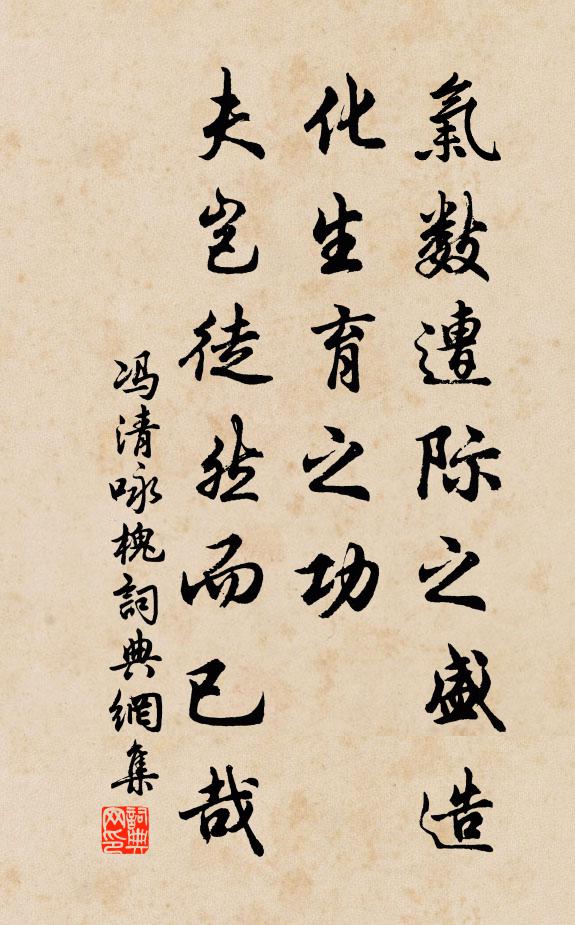 氣数遭际之盛造
化生育之功
夫岂徒然而已哉
冯清咏槐詞典網集
詞典网印